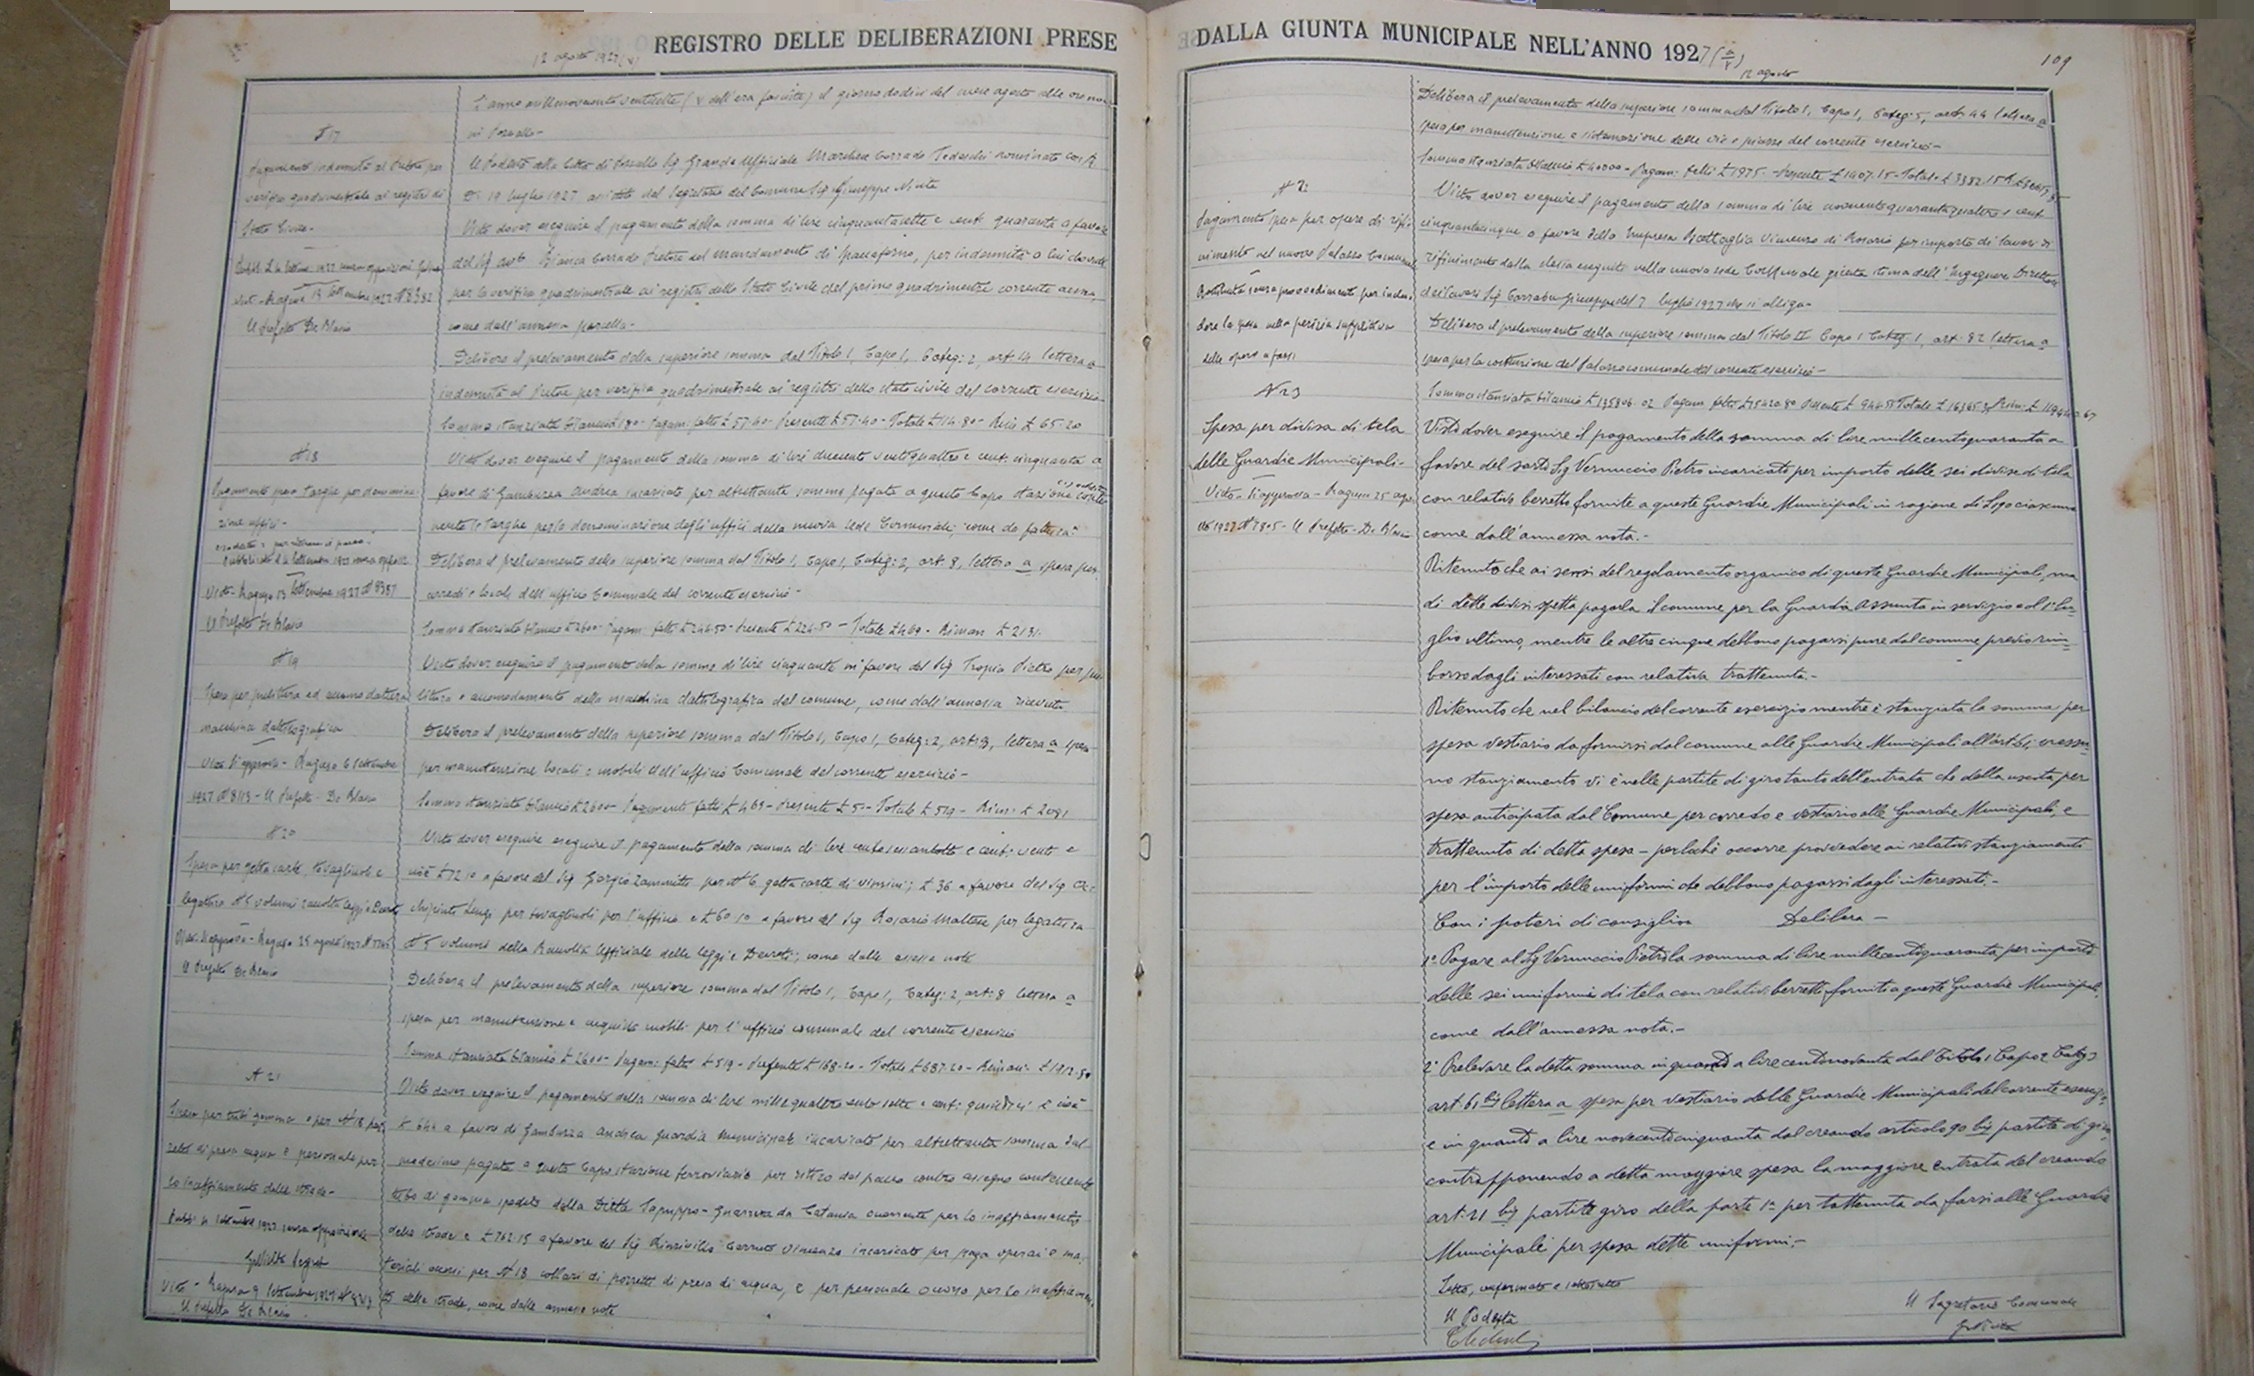 12 agosto 1927 (V)
REGISTRO DELLE DELIBERAZIONI PRESE
L'anno millenovecento ventisette (V dell'era fascista) il giorno dodici del mese agosto alle ore nove
in Pozzallo-
N 17
Pagamento indennità al Pretore per
verifica quadrimestrale ai registri di
Stato Civile.
Visto - Ragusa 13 Settembre 1927 N 8382
Il Prefetto De Blasio
Il Podestà della Città di Pozzallo Sig Grande Ufficiale Marchese Corrado Tedeschi nominato con R.
D. 19 luglio 1927 assistito dal Segretario del Comune Sig Giuseppe Ninta
Visto dover eseguire il pagamento della somma di lire cinquantasette e cent. quaranta a favore
del Sig avv. Bianca Corrado Pretore del mandamento di Spaccaforno, per indennità a lui dovute
per la verifica quadrimestrale ai registri dello Stato Civile del primo quadrimestre corrente anno
come dall'annessa parcella-
Delibera il prelevamento della superiore somma dal Titolo 1, Capo 1, Categ: 2, art. 14 lettera a
indennità al Pretore per verifica quadrimestrale ai registri dello stato civile del corrente esercizio-
Somma stanziata bilancio £ 180- Pagam: fatti £ 57.40- Presente £ 57.40- Totale £ 114.80- Rim. £ 65.20
N 18
Pagamento spesa targhe per denomina-
zione uffici-
Visto- Ragusa 13 Settembre 1927 N 8387
Il Prefetto De Blasio
Visto dover eseguire il pagamento della somma di lire duecento ventiquattro e cent. cinquanta a
favore di Gambuzza Andrea incaricato per altrettante somme pagate a questo Capo stazione
nente le targhe per la denominazione degli uffici della nuova sede Comunale, come da fattura-
Delibera il prelevamento della superiore somma dal Titolo 1, Capo 1, Categ: 2, art. 8, lettera a spesa per
arredi e locali dell'ufficio Comunale del corrente esercizio-
Somma stanziata bilancio £ 2600- Pagam: fatti £ 244.50- Presente £ 224.50- Totale £ 469- Riman £ 2131.
N 19
Spesa per pulitura ed accomodatura
macchina dattilografica
Visto Si approva- Ragusa 6 Settembre
1927 N 8113- Il Prefetto- De Blasio
Visto dover eseguire il pagamento della somma di lire cinquanta in favore del Sig Tropia Pietro per pu-
litura e accomodamento della macchina dattilografica del comune, come dall'annessa ricevuta.
Delibera il prelevamento della superiore somma dal Titolo 1, Capo 1, Categ: 2, art: 9, lettera a spesa
per manutenzione locali e mobili dell'ufficio Comunale del corrente esercizio-
Somma stanziata bilancio £ 2600- Pagamenti fatti £ 469- Presente £ 50- Totale £ 519- Riman: £ 2081
N 20
Spesa per getta carte, tovagliuoli e
legatura N 5 volumi raccolta leggi e Decreti
Visto- Si approva- Ragusa 25 agosto 1927 N
Il Prefetto De Blasio
Visto dover eseguire eseguire il pagamento della somma di lire centosessantotto e cent. venti e
cioè £ 72.10 a favore del Sig Giorgio Zammitti per N 6 getta carte di vimini; £ 36 a favore del Sig
Luigi per tovagliuoli per l'ufficio e £ 60.10 a favore del Sig Rosario Maltese per legatura
N 5 volumi della Raccolta Ufficiale delle leggi e Decreti; come dalle annesse note
Delibera il prelevamento della superiore somma dal Titolo 1, Capo 1, Categ: 2, art: 8 lettera a
spesa per manutenzione e acquisto mobili per l'ufficio comunale del corrente esercizio
Somma stanziata bilancio £ 2600- Pagam: fatti £ 519- Presente £ 168.20- Totale £ 687.20- Riman: £ 1912.80
N 21
Spesa per tubi gomma e per N 18
di presa acqua e personale per
lo innaffiamento delle strade-
Visto- Ragusa 9 Settembre 1927
Il Prefetto De Blasio
Visto dover eseguire il pagamento della somma di lire mille quattro cento sette e cent: quindici e cioè
£ 644 a favore di Gambuzza Andrea guardia Municipale incaricato per altrettanta somma dal
medesimo pagata a questo Capo stazione ferroviario per ritiro dal pacco contro assegno contenente
tubo di gomma spedito dalla Ditta Sapuppo-Guarrera da Catania occorrente per lo innaffiamento
delle strade e £ 762.15 a favore del Sig Vincenzo incaricato per paga operai e ma-
teriali occorsi per N 18 collari di pozzetti di presa di acqua, e per personale occorso per lo innaffiamen-
to delle strade, come dalle annesse note
DALLA GIUNTA MUNICIPALE NELL'ANNO 1927 (V)
12 agosto
109
Delibera il prelevamento della superiore somma dal Titolo 1, Capo 1, Categ: 5, art: 44 lettera a
spesa per manutenzione e sistemazione delle vie e piazze del corrente esercizio-
Somma stanziata bilancio £ 40000- Pagam: fatti £ 1975.- Presente £ 1407.15- Totale £ 3382.15
N 22
Pagamento spesa per opere di rifi-
nimento nel nuovo Palazzo Comunale
Restituita senza provvedimenti per inclu-
dere la spesa nella perizia suppletiva
delle opere a farsi
Visto dover eseguire il pagamento della somma di lire novecentoquarantaquattro e cent
cinquantacinque a favore della Impresa Battaglia Vincenzo di Rosario per importo di lavori di
rifinimento dalla stessa eseguiti nella nuova sede Comunale giusta stima dell'Ingegnere Direttore
dei lavori Sig Corradino Giuseppe del 7 luglio 1927 che si allega-
Delibera il prelevamento della superiore somma dal Titolo II Capo 1 Categ. 1, art. 82 lettera a
spesa per la costruzione del Palazzo comunale del corrente esercizio-
N 23
Spesa per divisa di tela
delle Guardie Municipali-
Visto- Si approva- Ragusa 25 ago-
sto 1927 N 7805- Il Prefetto- De Blasio
Visto dover eseguire il pagamento della somma di lire millecentoquaranta a
favore del sarto Sig Vernuccio Pietro incaricato per importo delle sei divise di tela
con relativo berretto fornite a queste Guardie Municipali in ragione di L.190 ciascuna
come dall'annessa nota.-
Ritenuto che ai sensi del regolamento organico di queste Guardie Municipali, una
di dette divise spetta pagarla il comune per la Guardia assunta in servizio col 1° Lu-
glio ultimo, mentre le altre cinque debbono pagarsi pure dal comune previo rim-
borso dagli interessati con relativa trattenuta.-
Ritenuto che nel bilancio del corrente esercizio mentre è stanziata la somma per
spesa vestiario da fornirsi dal comune alle Guardie Municipali all'art. 61, nessu-
no stanziamento vi è nelle partite di giro tanto dell'entrata che della uscita per
spesa anticipata dal Comune per corredo e vestiario alle Guardie Municipali, e
trattenuta di detta spesa- perlochè occorre provvedere ai relativi stanziamenti
per l'importo delle uniformi che debbono pagarsi dagli interessati.-
Con i poteri di consiglio Delibera-
1° Pagare al Sig Vernuccio Pietro la somma di lire millecentoquaranta per importo
delle sei uniformi di tela con relativi berretti forniti a queste Guardie Municipali,
come dall'annessa nota.-
2° Prelevare la detta somma in quanto a lire centonovanta dal Titolo 1 Capo 2 Catg 3
art. 61 bis lettera a spesa per vestiario delle Guardie Municipali del corrente eserciz-
e in quanto a lire novecentocinquanta dal creando articolo 90 bis partite di giro
contrapponendo a detta maggiore spesa la maggiore entrata del creando
art. 21 bis partite giro della parte 1a per trattenuta da farsi alle Guardie
Municipali per spesa dette uniformi.-
Letto, confermato e sottoscritto
Il Podestà
Il Segretario Comunale